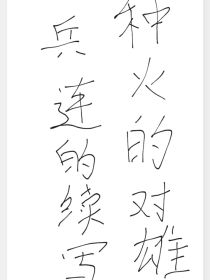 种火的对雄
兵连的续写